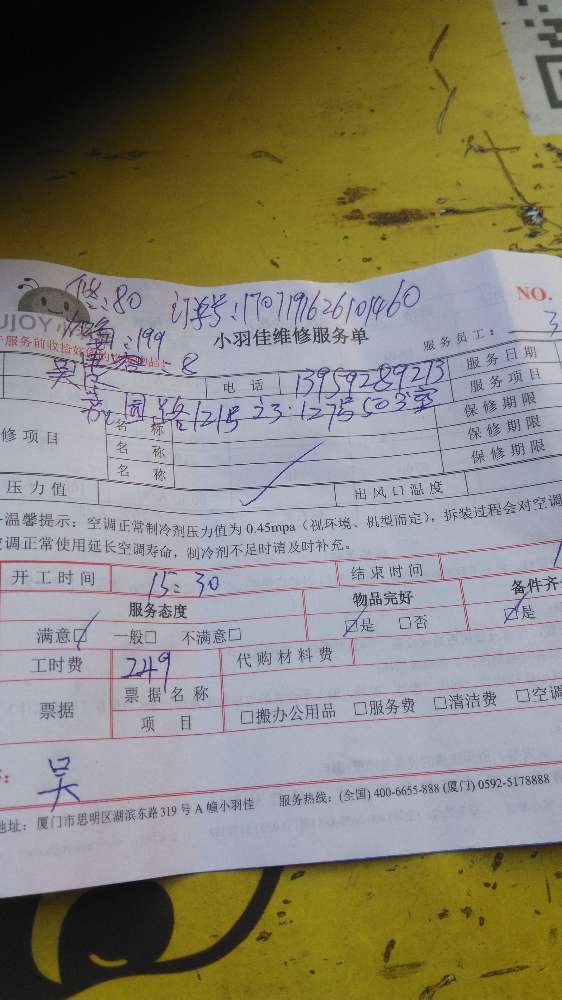 :80 订单号:1707191626101460
NO.
UJOY
:199
小羽佳维修服务单
服务员工: 3
服务前收拾好
8
吴
电话 13959289213 服务日期
园路121号23·127号503室 服务项目
修项目 名称 保修期限
名称 保修期限
名称 保修期限
压力值 出风口温度
温馨提示:空调正常制冷剂压力值为0.45mpa(视环境、机型而定),拆装过程会对空调
调正常使用延长空调寿命,制冷剂不足时请及时补充。
开工时间 15:30 结束时间
服务态度 物品完好 备件齐
满意☑ 一般□ 不满意□ ☑是 □否 ☑是
工时费 249 代购材料费
票据 票据名称
项目 □搬办公用品 □服务费 □清洁费 □空调
吴
地址:厦门市思明区湖滨东路319号A幢小羽佳 服务热线:(全国)400-6655-888(厦门)0592-5178888